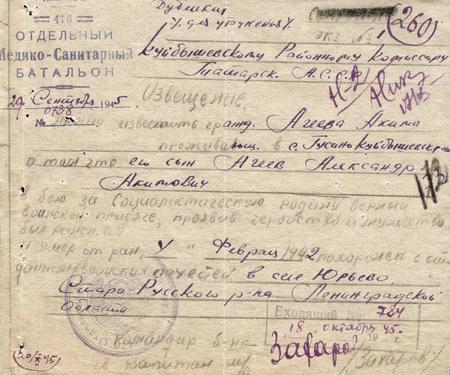 Дубликат
экз №1
(260)
476
ОТДЕЛЬНЫЙ
Медико-Санитарный
БАТАЛЬОН
Куйбышевскому Районному Комиссару
Татарск. А.С.С.Р.
29 Сентября 1945
№ 0738
Извещение.
Прошу известить гражд. Агеева Акима
проживающ. в с.
о том что его сын Агеев Александр
Акимович
173
В бою за Социалистическую родину верный
воинской присяге, проявив геройство и мужество
был ранен
и умер от ран, V Февраля 1942 похоронен с
почестей в селе Юрьево
Старо Русского р-на Ленинградской
Области
Входящий № 724
18 октября 45.
Командир б-на
капитан м/с
Захаров
/Захаров/